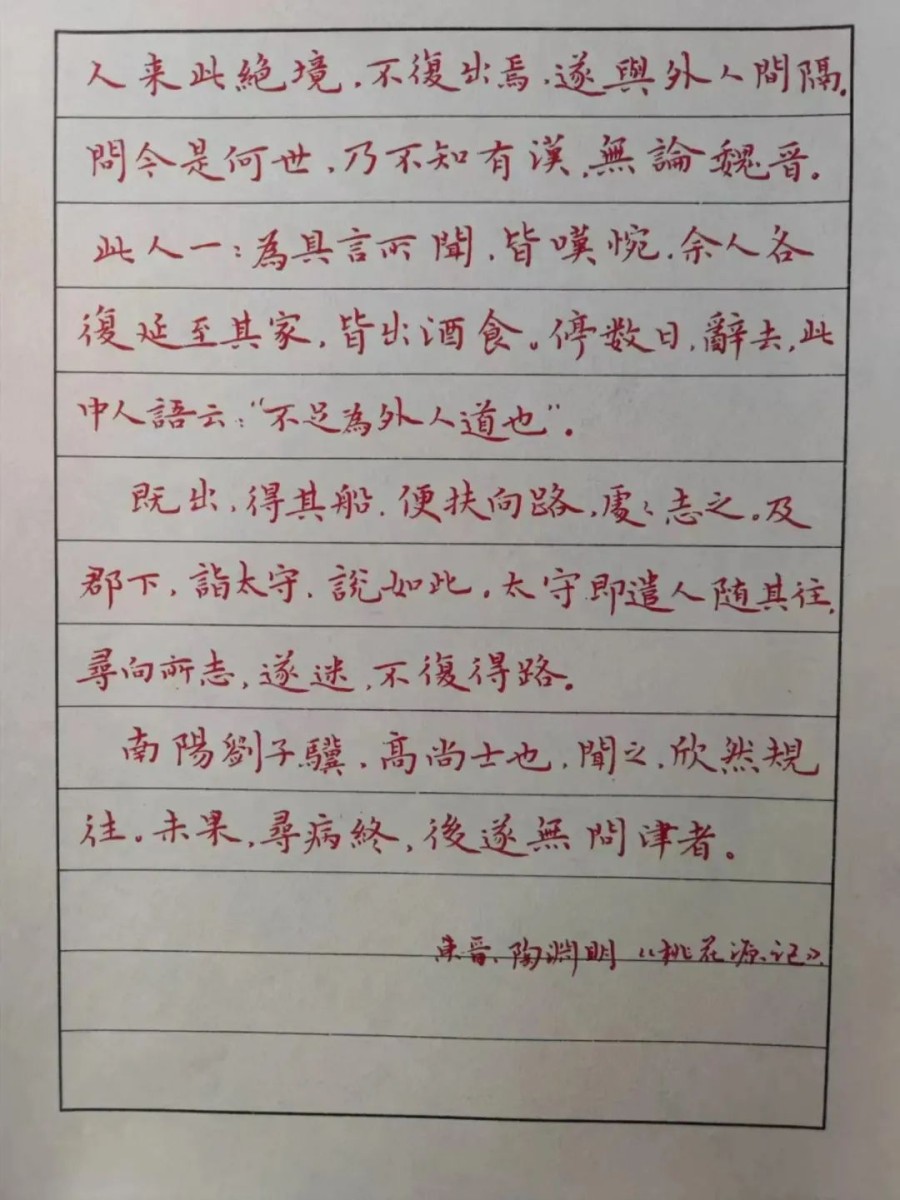 人来此絶境,不復出焉,遂與外人間隔.
問今是何世,乃不知有漢,無論魏晋。
此人一:為具言所聞,皆嘆惋.余人各
復延至其家,皆出酒食。停数日,辭去,此
中人語云:"不足為外人道也"。
既出,得其船.便扶向路,處〻志之。及
郡下,詣太守、説如此。太守即遣人随其往,
尋向所志,遂迷,不復得路。
南陽劉子驥,高尚士也,聞之,欣然規
往。未果,尋病終,後遂無問津者。
東晋、陶淵明《桃花源记》.